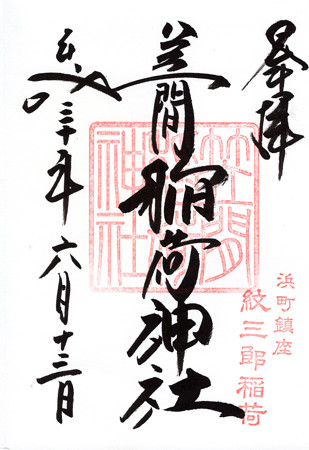 奉拝
浜町鎮座
紋三郎稲荷
笠間稲荷神社
笠間
稲荷
神社
平成三十年六月十三日